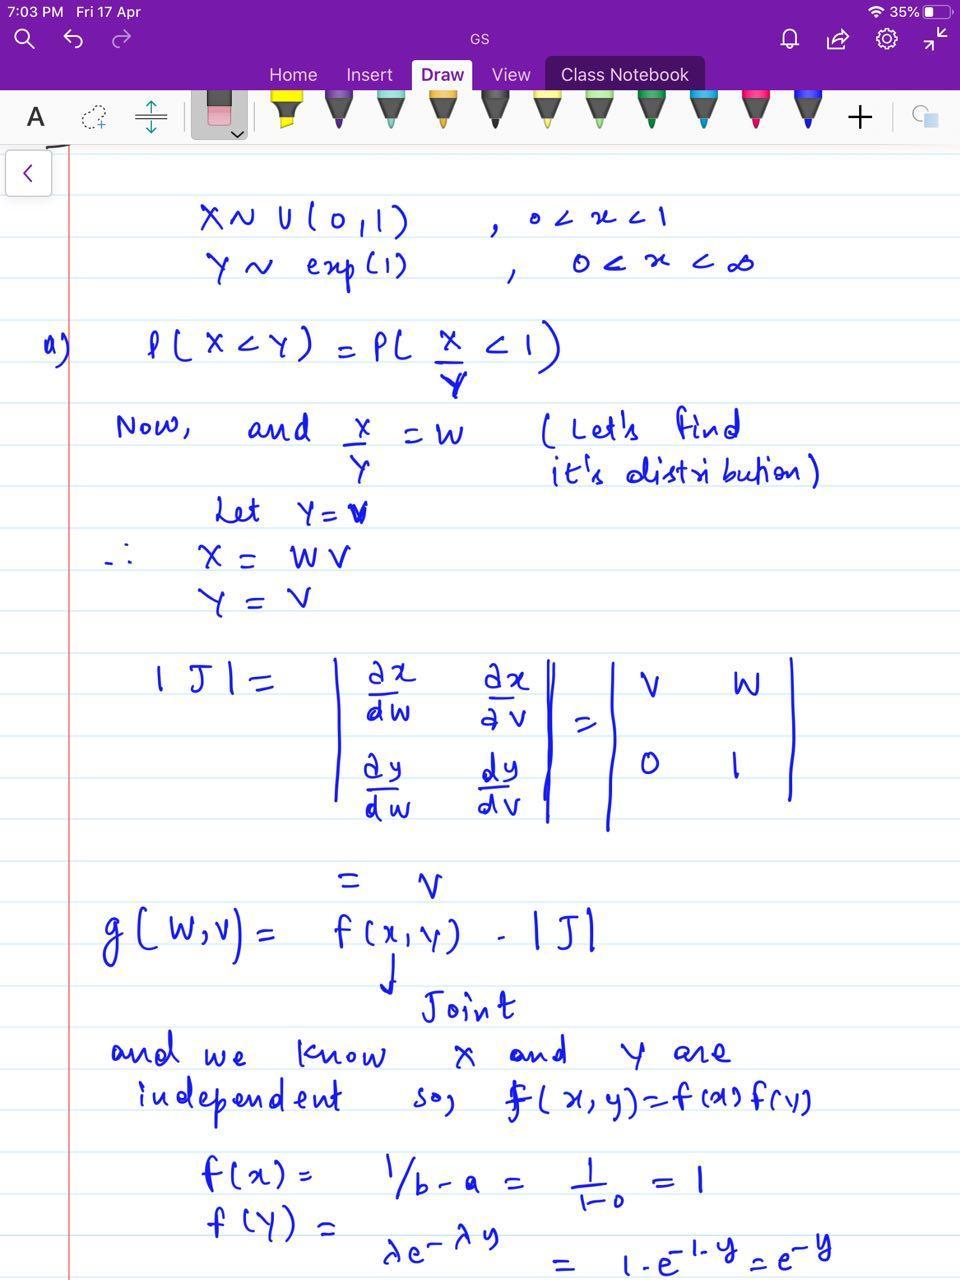 7:03 PM Fri 17 Apr
35%
GS
Home Insert Draw View Class Notebook
A
X ~ U(0,1) , 0 < x < 1
Y ~ exp(1) , 0 < x < ∞
a) P(X < Y) = P( X/Y < 1)
Now, and X/Y = W (Let's find
it's distribution)
Let Y = V
∴ X = WV
Y = V
|J| = | ∂x/dw ∂x/∂v | = | V W |
| ∂y/dw dy/dv | | 0 1 |
= V
g(W,V) = f(x,y) . |J|
↓
Joint
and we know X and Y are
independent so, f(x,y) = f(x) f(y)
f(x) = 1/b-a = 1/1-0 = 1
f(Y) = λe^-λy = 1.e^-1.y = e^-y